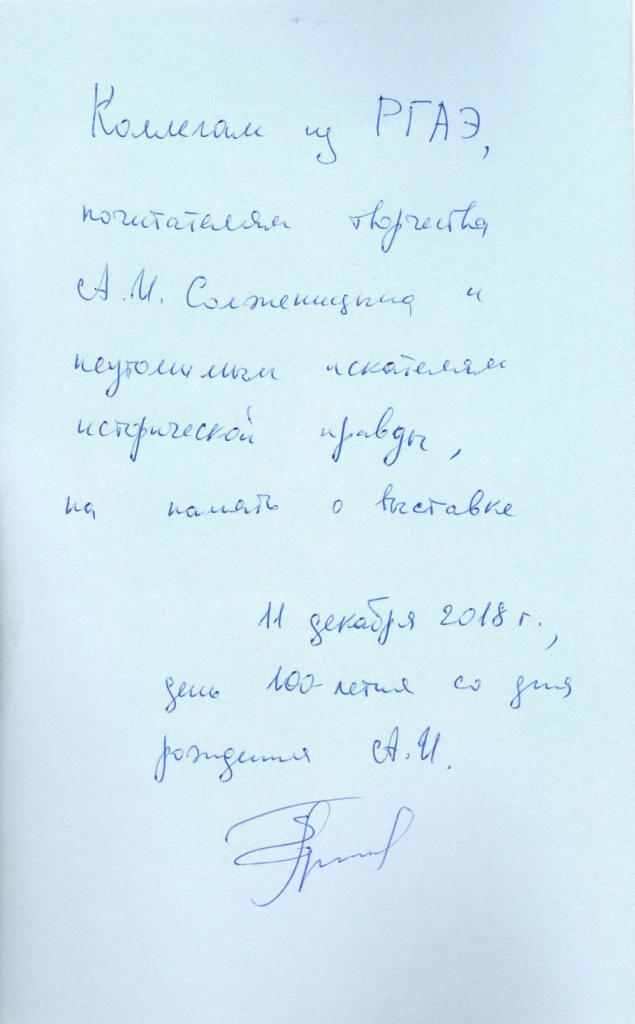 Коллегам из РГАЭ,
почитателям творчества
А.И. Солженицына и
неутомимым искателям
исторической правды,
на память о выставке
11 декабря 2018 г.,
день 100-летия со дня
рождения А.И.